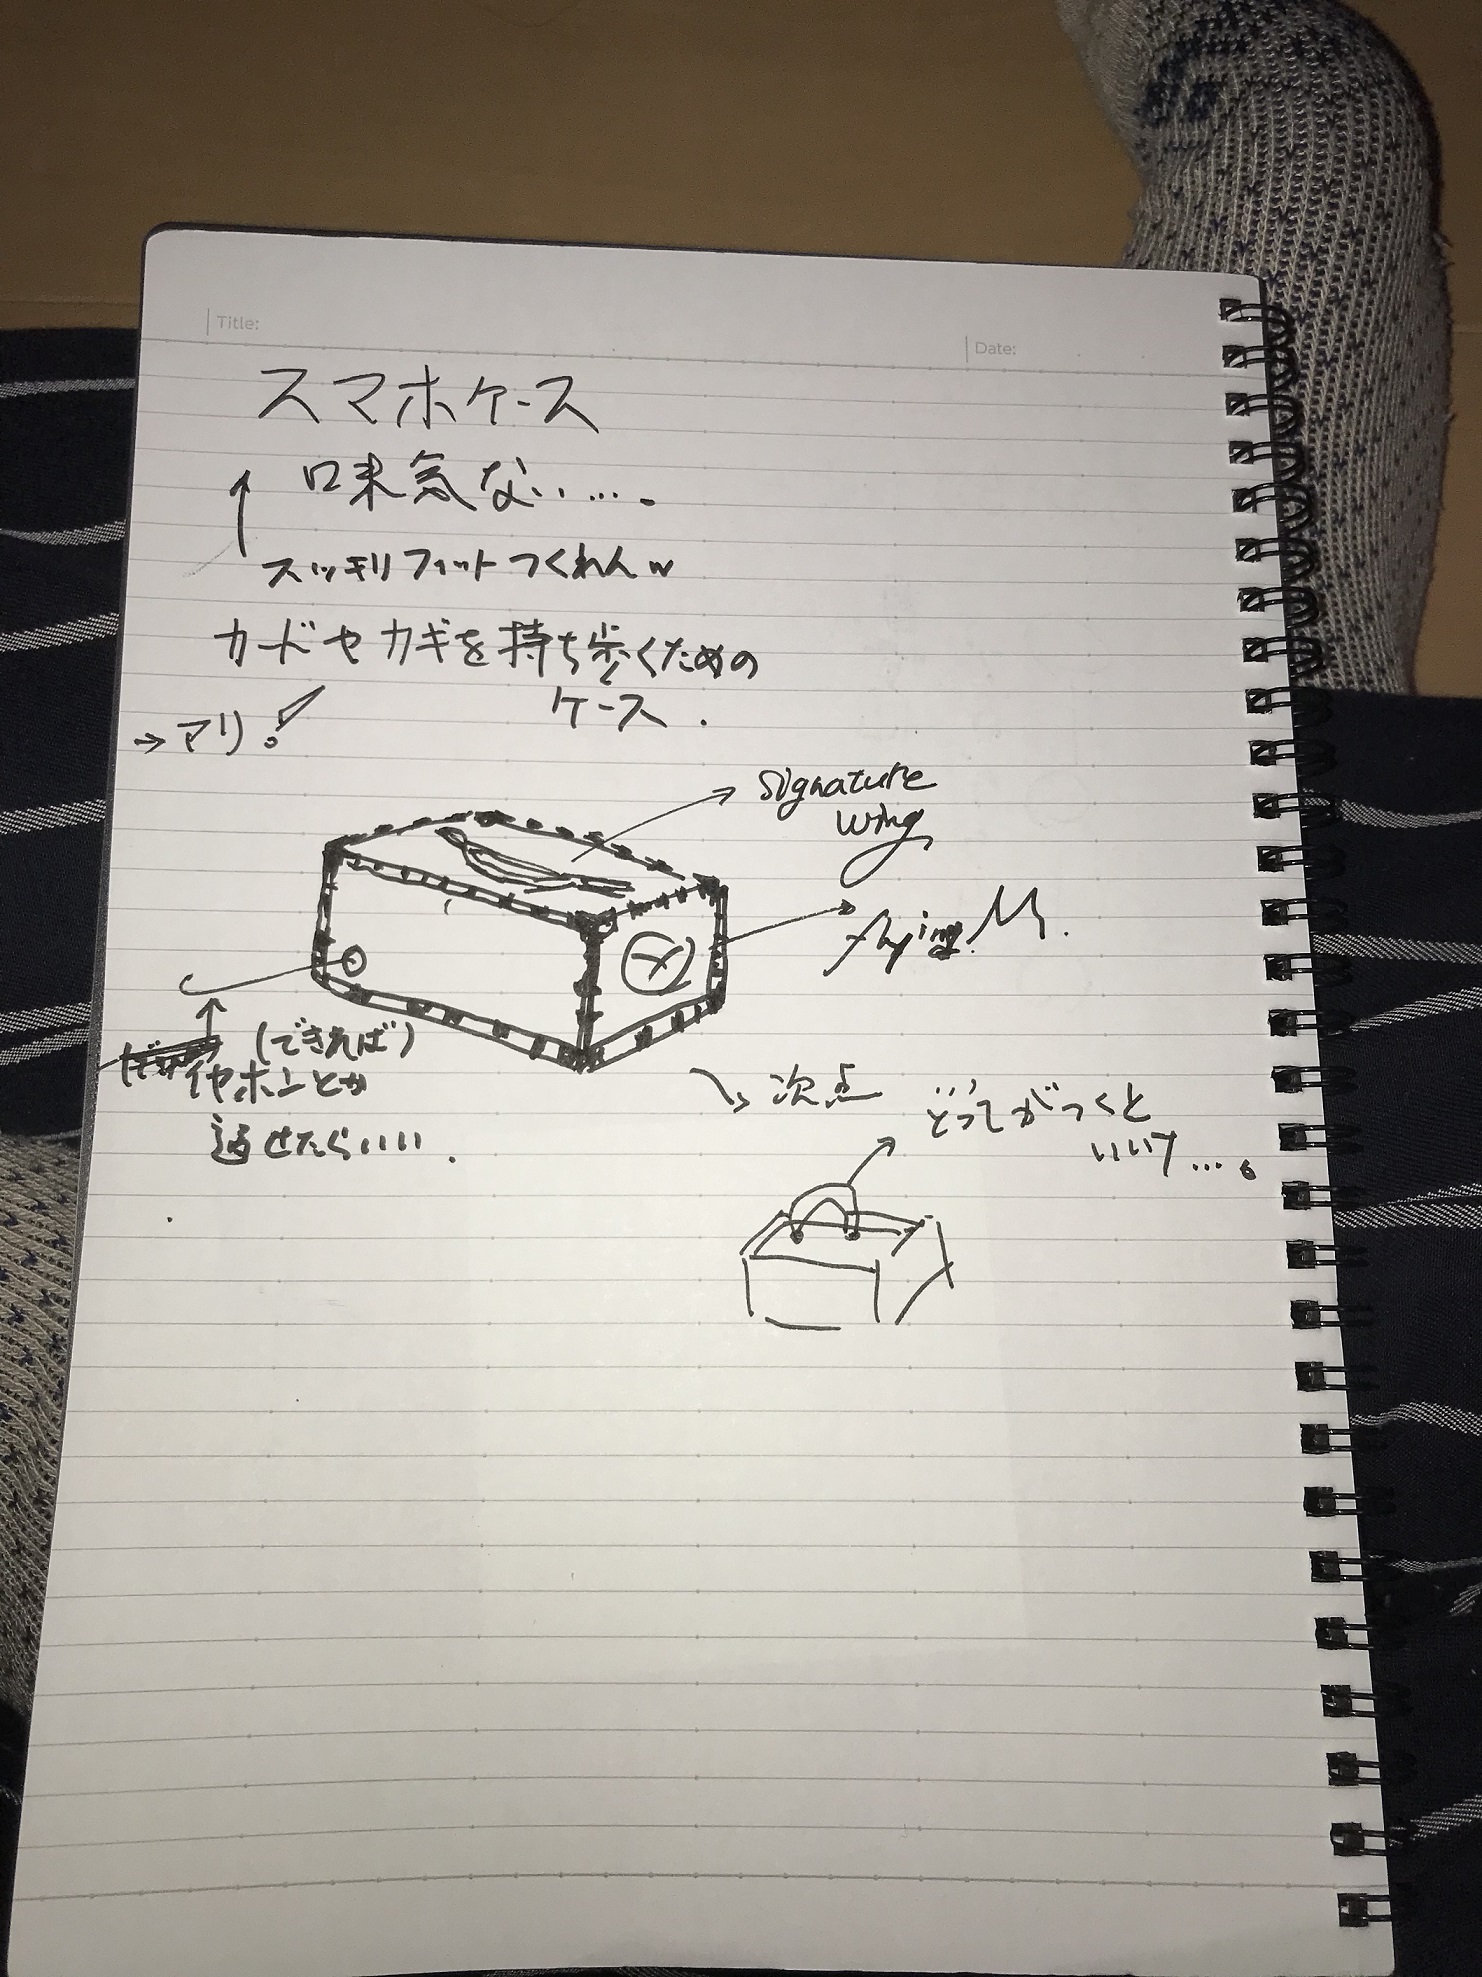 Title:
Date:
スマホケース
味気ない….
スッキリフィットつくれんw
カードやカギを持ち歩くための
ケース.
→アリ!
signature
wing
flying M.
(できれば)
イヤホンとか
通せたらいい.
次点
とってがつくと
いいけ…。